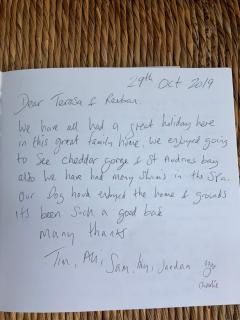 29th Oct 2019
Dear Teresa &
We have all had a great holiday here
in this great family home. We enjoyed going
to See cheddar gorge & St Audries bay
also We have had many in the Spa.
Our Dog have enjoyed the home & grounds
its been Such a good
Many thanks
Tim, Ali, Sam, Jordan
Charlie